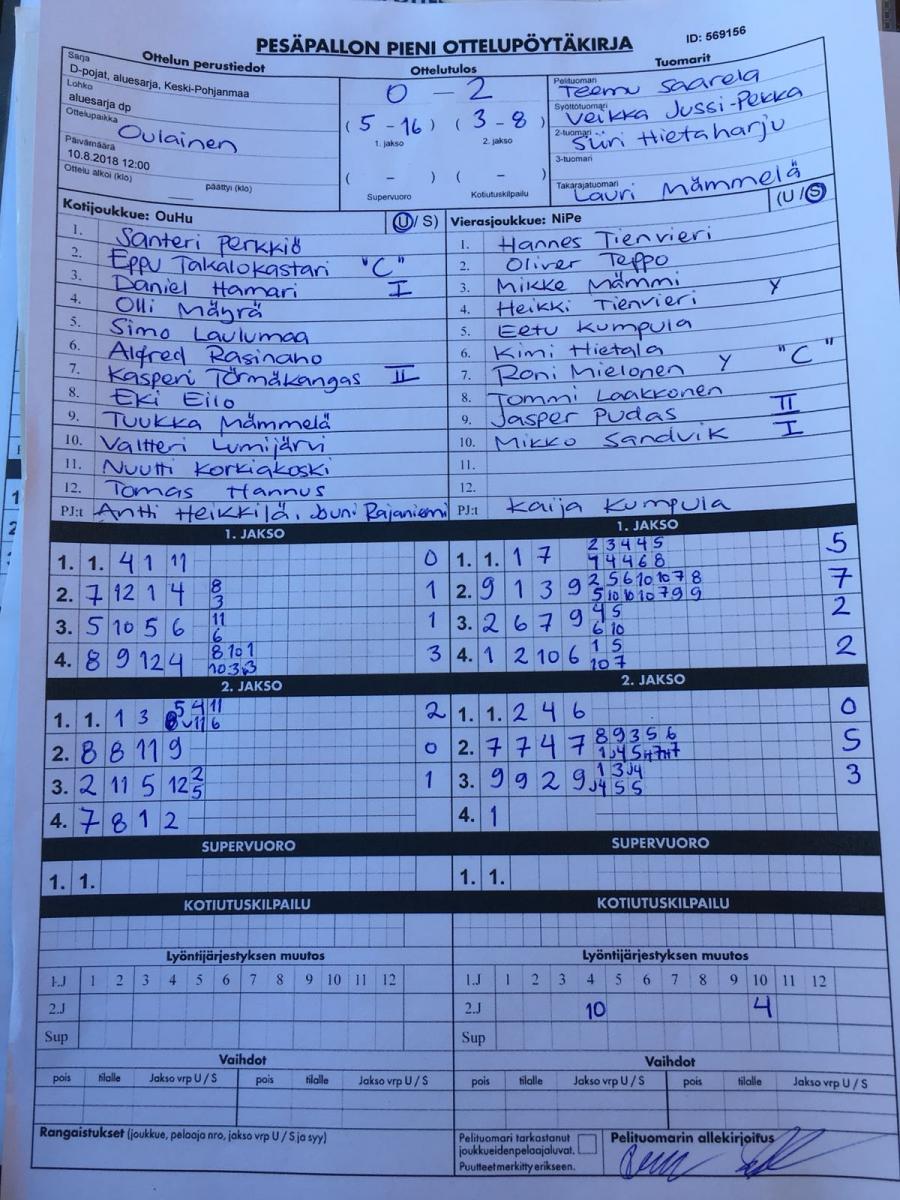 PESÄPALLON PIENI OTTELUPÖYTÄKIRJA
ID: 569156
Ottelun perustiedot
Sarja
D-pojat, aluesarja, Keski-Pohjanmaa
Lohko
aluesarja dp
Ottelupaikka
Oulainen
Päivämäärä
10.8.2018 12:00
Ottelu alkoi (klo) päättyi (klo)
Ottelutulos
0 - 2
( 5 - 16 ) ( 3 - 8 )
1. jakso 2. jakso
( - ) ( - )
Supervuoro Kotiutuskilpailu
Tuomarit
Pelituomari
Teemu Saarela
Syöttötuomari
Veikka Jussi-Pekka
2-tuomari
Siiri Hietaharju
3-tuomari
Takarajatuomari
Lauri Mämmelä
Kotijoukkue: OuHu (U/ S)
1. Santeri Perkkiö
2. Eppu Takalokastari "C"
3. Daniel Hamari I
4. Olli Mäyrä
5. Simo Laulumaa
6. Alfred Rasinaho
7. Kasperi Törmäkangas II
8. Eki Eilo
9. Tuukka Mämmelä
10. Valtteri Lumijärvi
11. Nuutti Korkiakoski
12. Tomas Hannus
PJ:t Antti Heikkilä, Jouni Rajaniemi
Vierasjoukkue: NiPe (U /S)
1. Hannes Tienvieri
2. Oliver Teppo
3. Mikke Mämmi Y
4. Heikki Tienvieri
5. Eetu Kumpula
6. Kimi Hietala
7. Roni Mielonen Y "C"
8. Tommi Laakkonen
9. Jasper Pudas II
10. Mikko Sandvik I
11.
12.
PJ:t Kaija Kumpula
1. JAKSO
1. 1. 4 1 11 0
2. 7 12 1 4 8 1
3
3. 5 10 5 6 11 1
6
4. 8 9 12 4 8 10 1 3
10 3 3
1. JAKSO
1. 1. 1 7 2 3 4 4 5 5
4 4 4 6 8
2. 9 1 3 9 2 5 6 10 10 7 8 7
5 10 10 10 7 9 9
3. 2 6 7 9 4 5 2
6 10
4. 1 2 10 6 1 5 2
10 7
2. JAKSO
1. 1. 1 3 5 4 11 2
11 6
2. 8 8 11 9 0
3. 2 11 5 12 2 1
5
4. 7 8 1 2
2. JAKSO
1. 1. 2 4 6 0
2. 7 7 4 7 8 9 3 5 6 5
3. 9 9 2 9 1 3 J4 3
J4 5 5
4. 1
SUPERVUORO
1. 1.
SUPERVUORO
1. 1.
KOTIUTUSKILPAILU
KOTIUTUSKILPAILU
Lyöntijärjestyksen muutos
1.J 1 2 3 4 5 6 7 8 9 10 11 12
2.J
Sup
Lyöntijärjestyksen muutos
1.J 1 2 3 4 5 6 7 8 9 10 11 12
2.J 10 4
Sup
Vaihdot
pois tilalle Jakso vrp U / S pois tilalle Jakso vrp U / S
Vaihdot
pois tilalle Jakso vrp U / S pois tilalle Jakso vrp U / S
Rangaistukset (joukkue, pelaaja nro, jakso vrp U / S ja syy)
Pelituomari tarkastanut
joukkueidenpelaajaluvat.
Puutteet merkitty erikseen.
Pelituomarin allekirjoitus